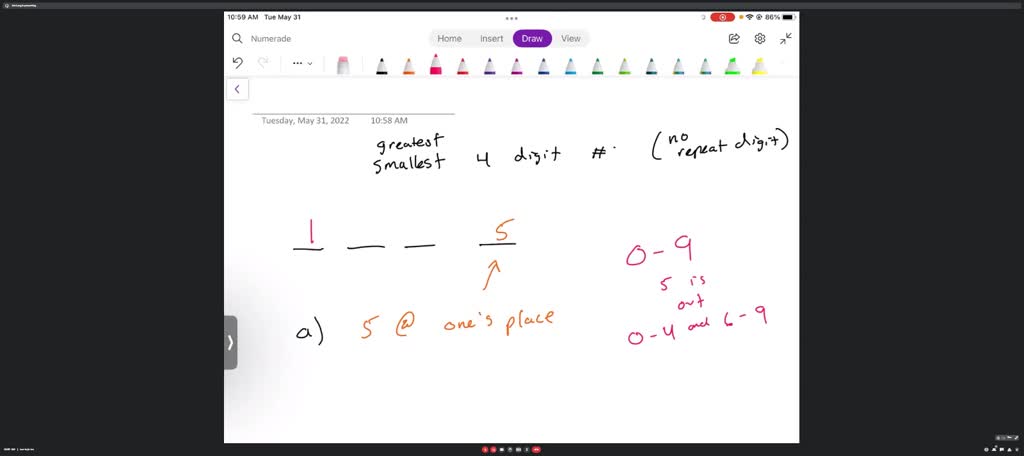 10:59 AM Tue May 31
86%
Numerade
Home Insert Draw View
Tuesday, May 31, 2022 10:58 AM
greatest
smallest 4 digit #. (no repeat digit)
1 _ _ 5
0-9
5 is
out
0-4 and 6-9
a) 5 @ one's place